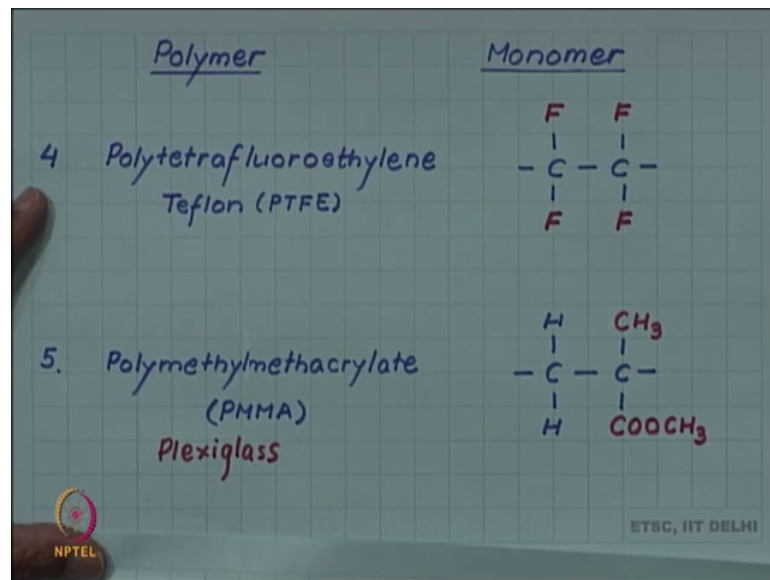 Polymer Monomer
4 Polytetrafluoroethylene
Teflon (PTFE)
F F
- C - C -
F F
5. Polymethylmethacrylate
(PMMA)
Plexiglass
H CH3
- C - C -
H COOCH3
NPTEL
ETSC, IIT DELHI